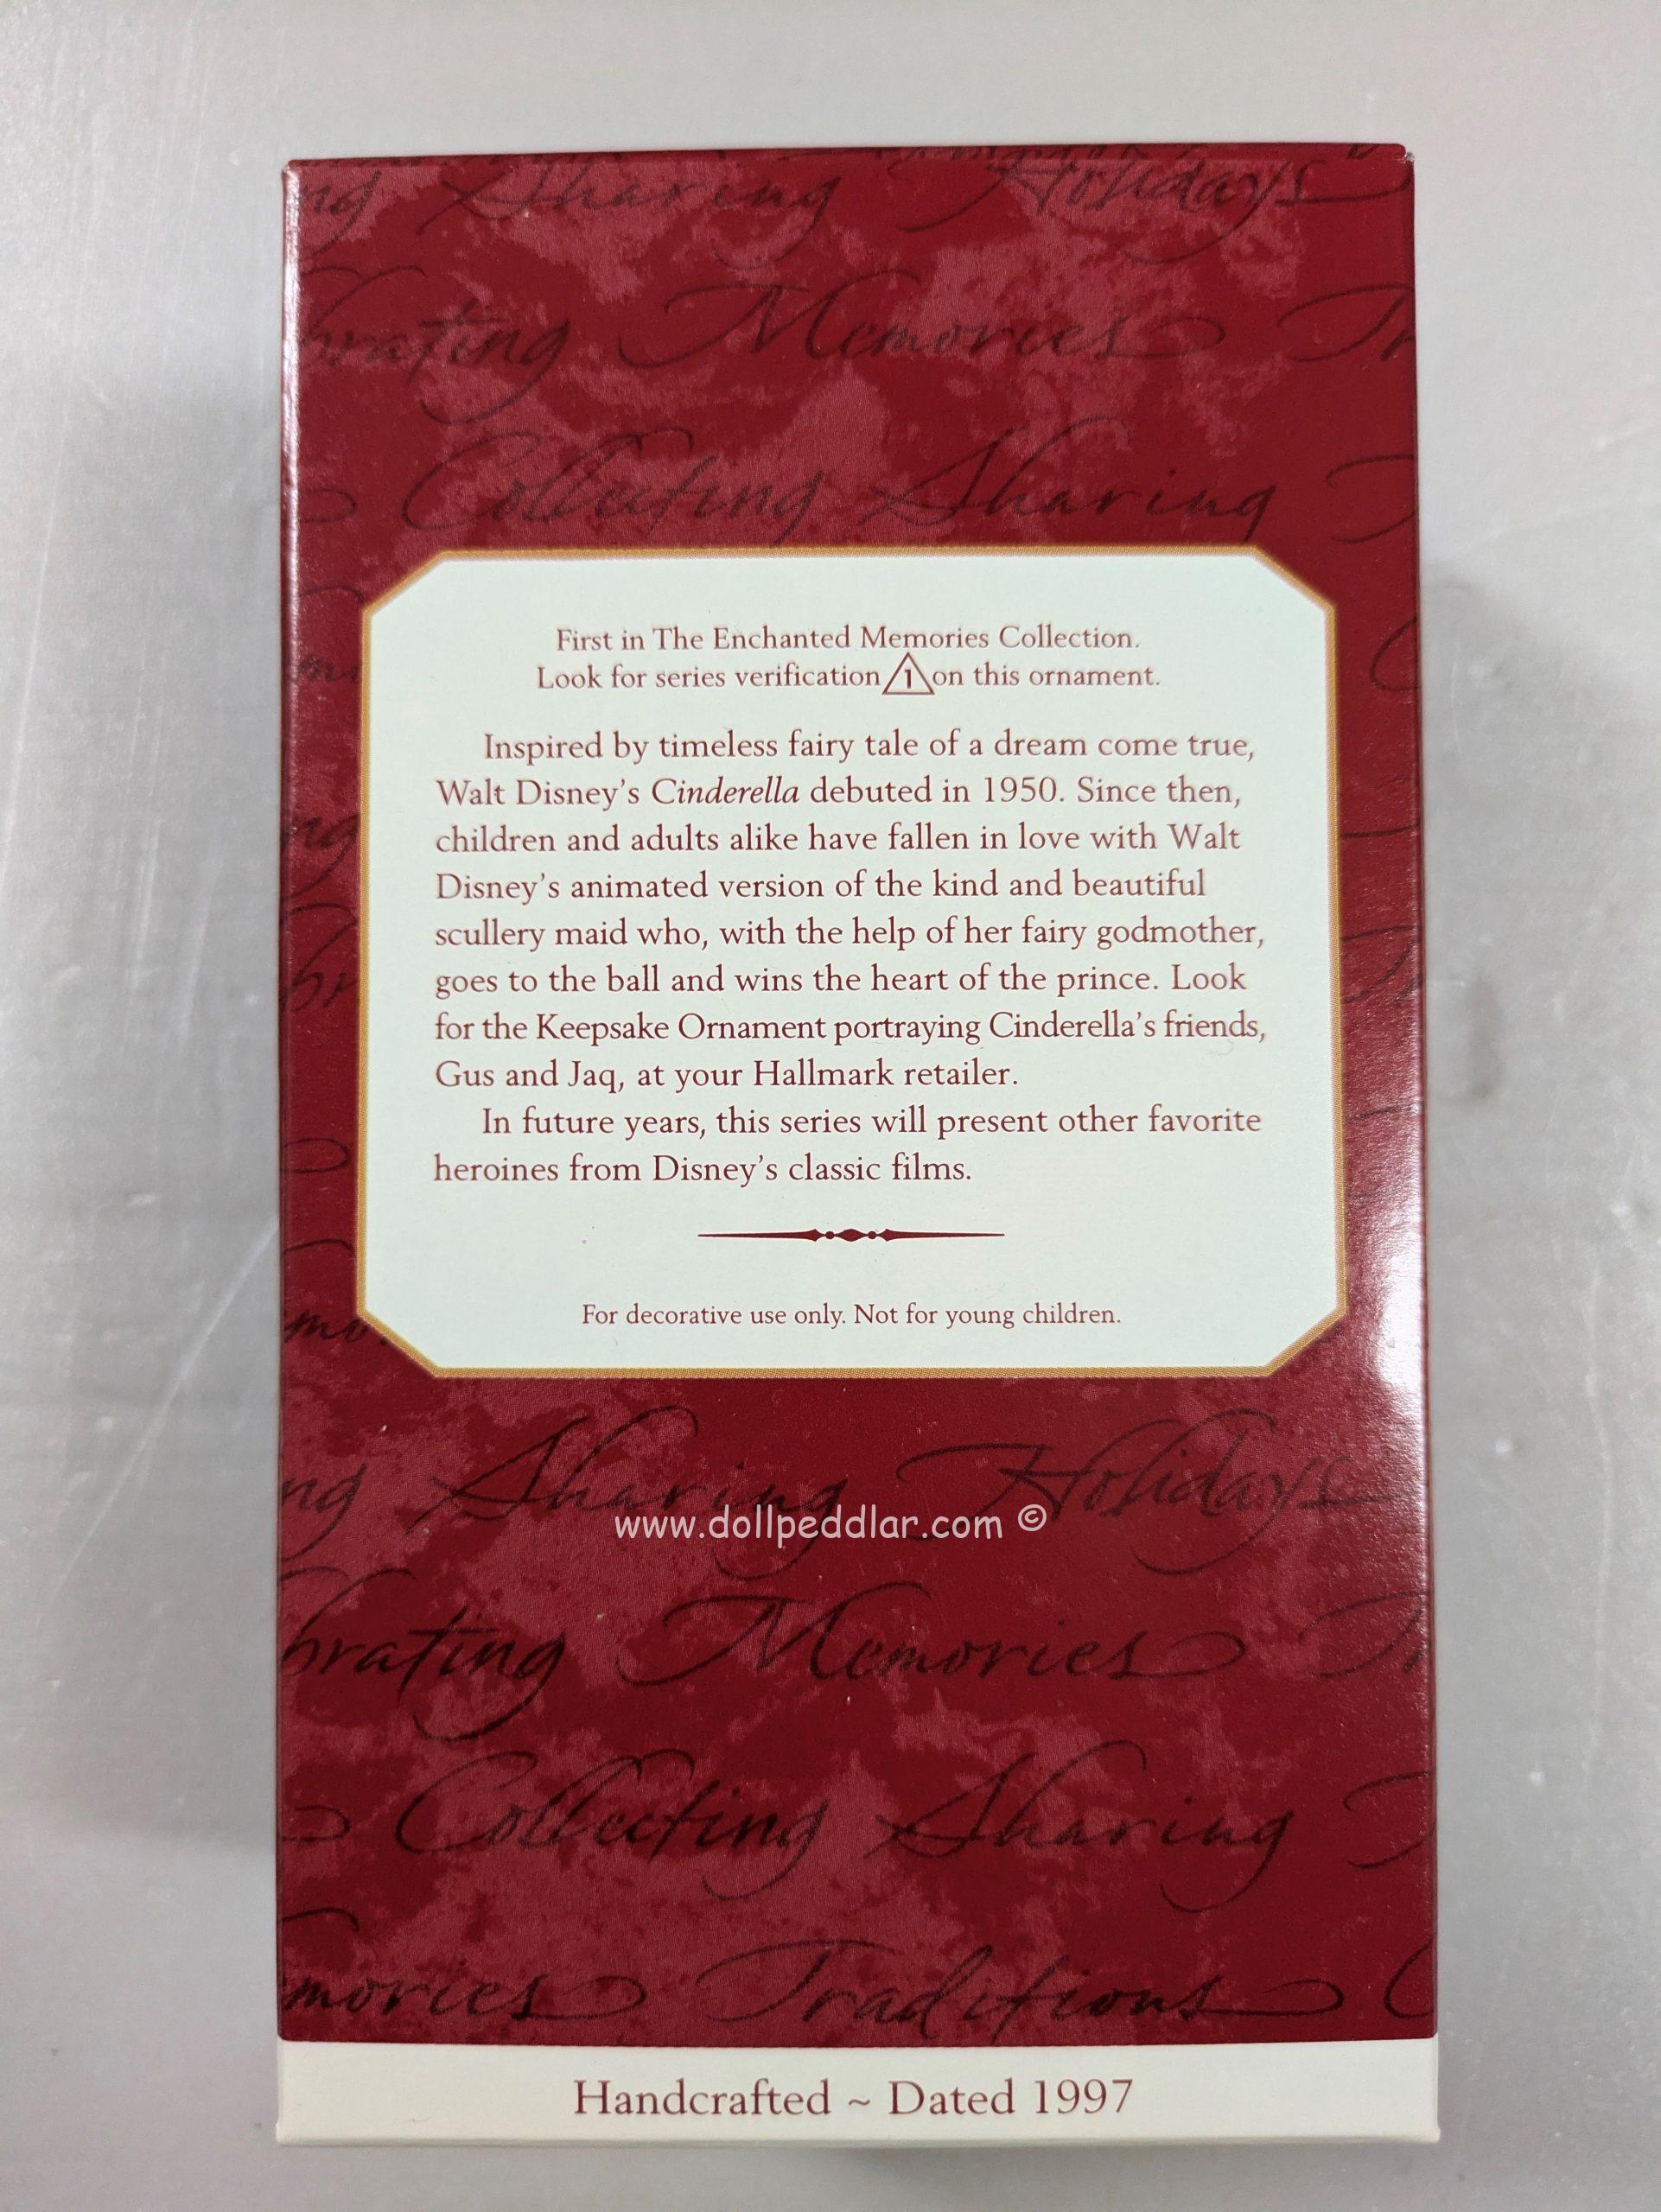 Sharing Holidays
Memories
Collecting Sharing
First in The Enchanted Memories Collection.
Look for series verification 1 on this ornament.
Inspired by timeless fairy tale of a dream come true,
Walt Disney's Cinderella debuted in 1950. Since then,
children and adults alike have fallen in love with Walt
Disney's animated version of the kind and beautiful
scullery maid who, with the help of her fairy godmother,
goes to the ball and wins the heart of the prince. Look
for the Keepsake Ornament portraying Cinderella's friends,
Gus and Jaq, at your Hallmark retailer.
In future years, this series will present other favorite
heroines from Disney's classic films.
For decorative use only. Not for young children.
Sharing Holidays
www.dollpeddlar.com ©
brating Memories
Collecting Sharing
mories Traditions
Handcrafted ~ Dated 1997